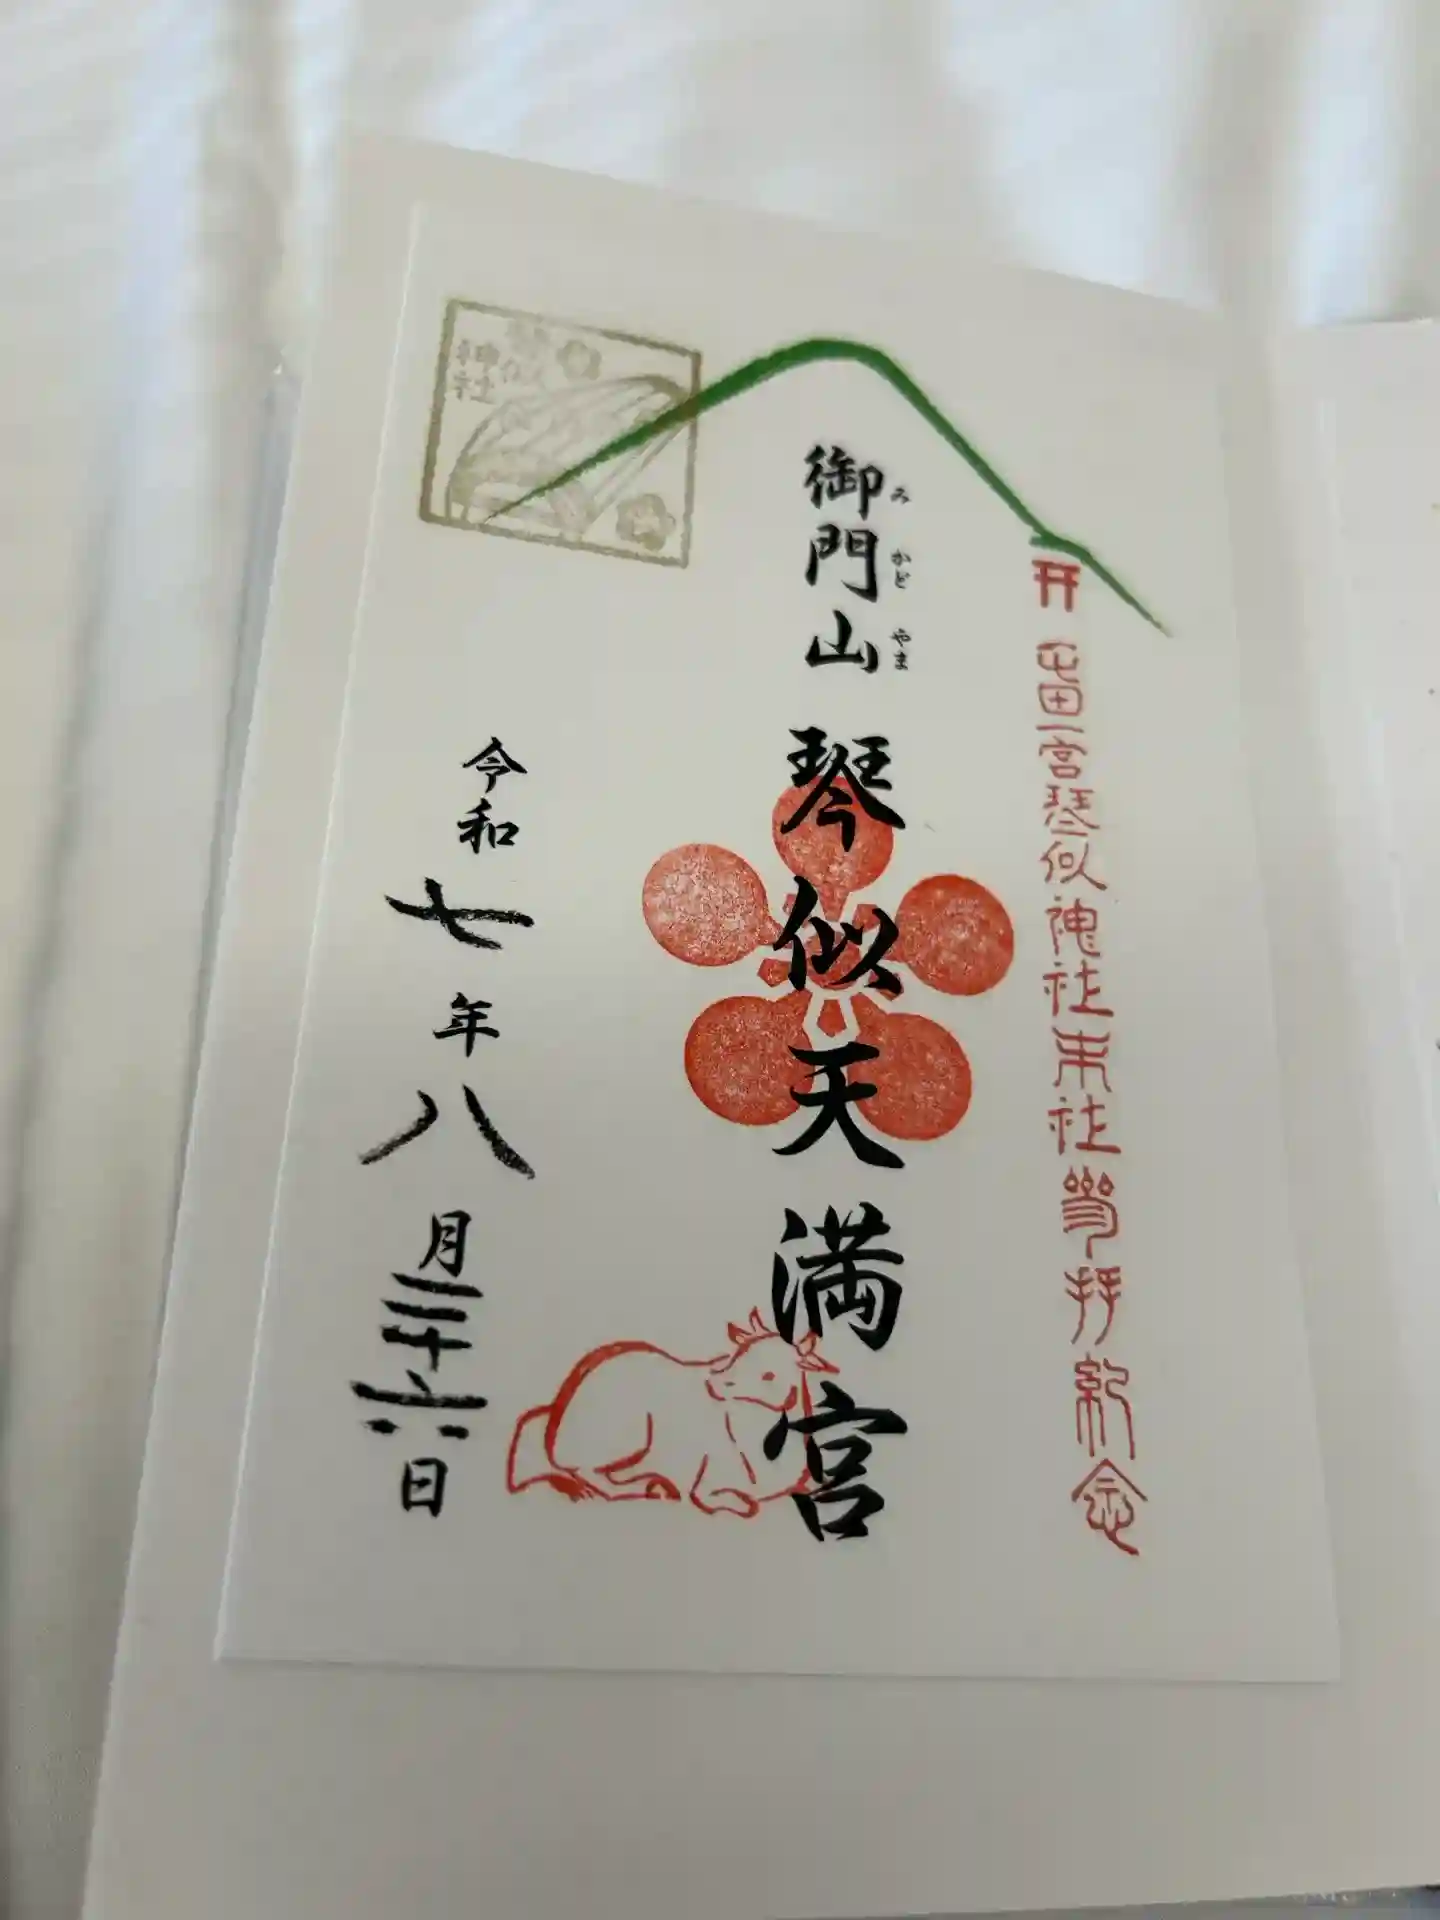 屯田一宮琴似神社末社参拝紀念
御門山
みかどやま
琴似天満宮
令和七年八月二十六日
神社